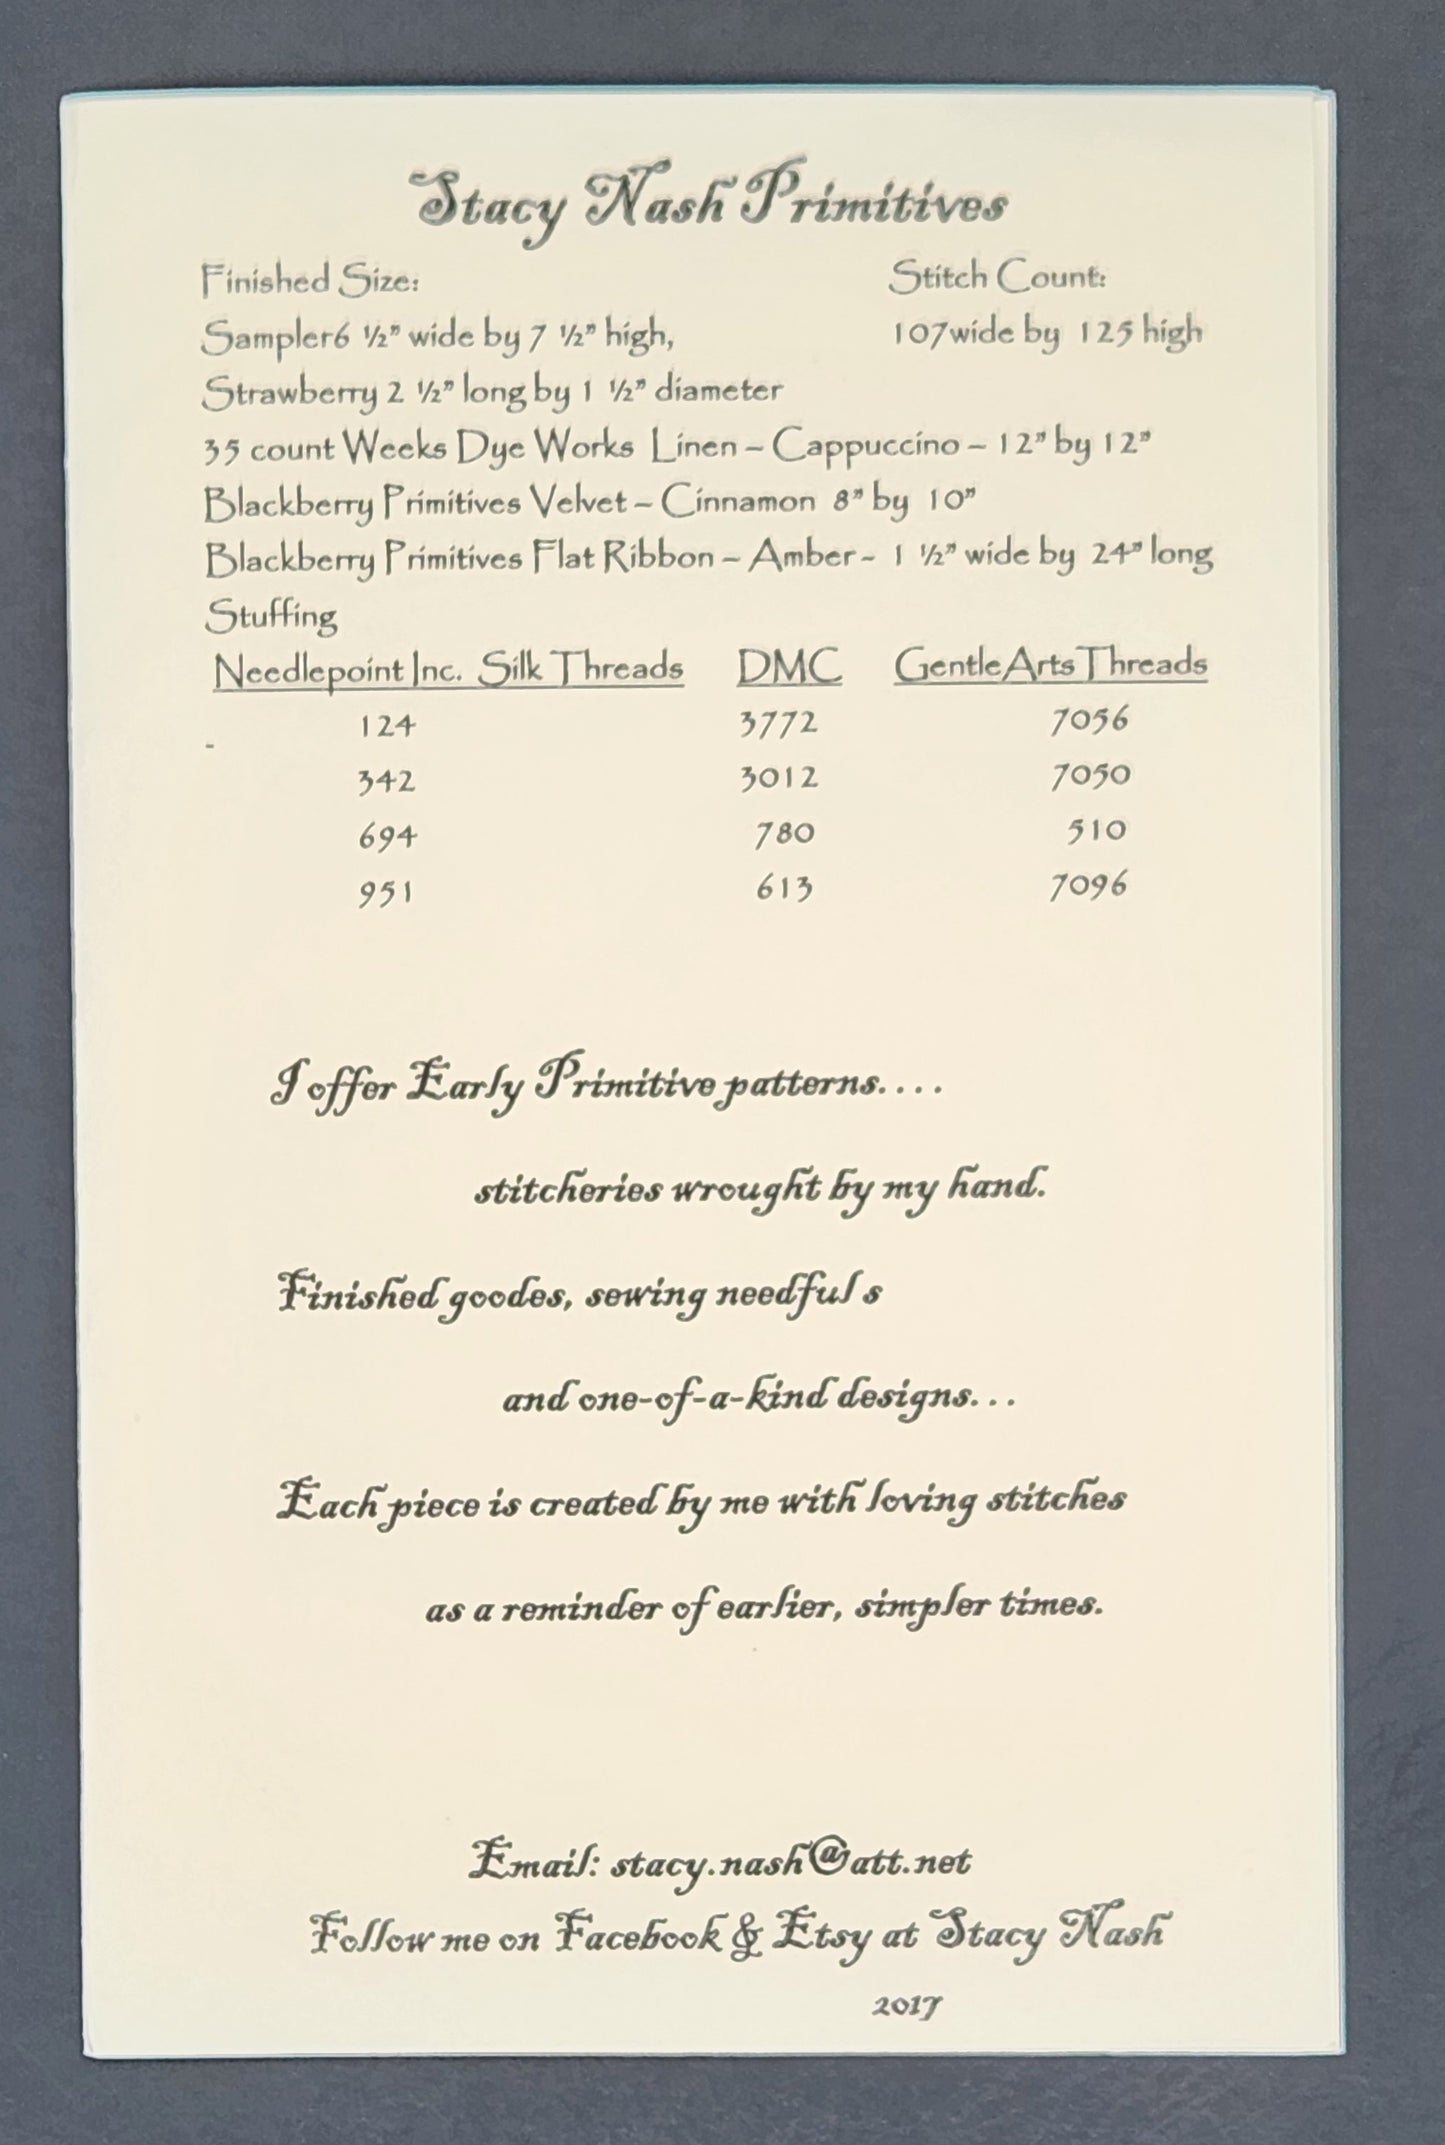 Stacy Nash Primitives
Finished Size: Stitch Count:
Sampler6 ½” wide by 7 ½” high, 107wide by 125 high
Strawberry 2 ½” long by 1 ½” diameter
35 count Weeks Dye Works Linen – Cappuccino – 12” by 12”
Blackberry Primitives Velvet – Cinnamon 8” by 10”
Blackberry Primitives Flat Ribbon – Amber - 1 ½” wide by 24” long
Stuffing
Needlepoint Inc. Silk Threads DMC GentleArts Threads
124 3772 7056
342 3012 7050
694 780 510
951 613 7096
I offer Early Primitive patterns....
stitcheries wrought by my hand.
Finished goodes, sewing needful s
and one-of-a-kind designs...
Each piece is created by me with loving stitches
as a reminder of earlier, simpler times.
Email: stacy.nash@att.net
Follow me on Facebook & Etsy at Stacy Nash
2017